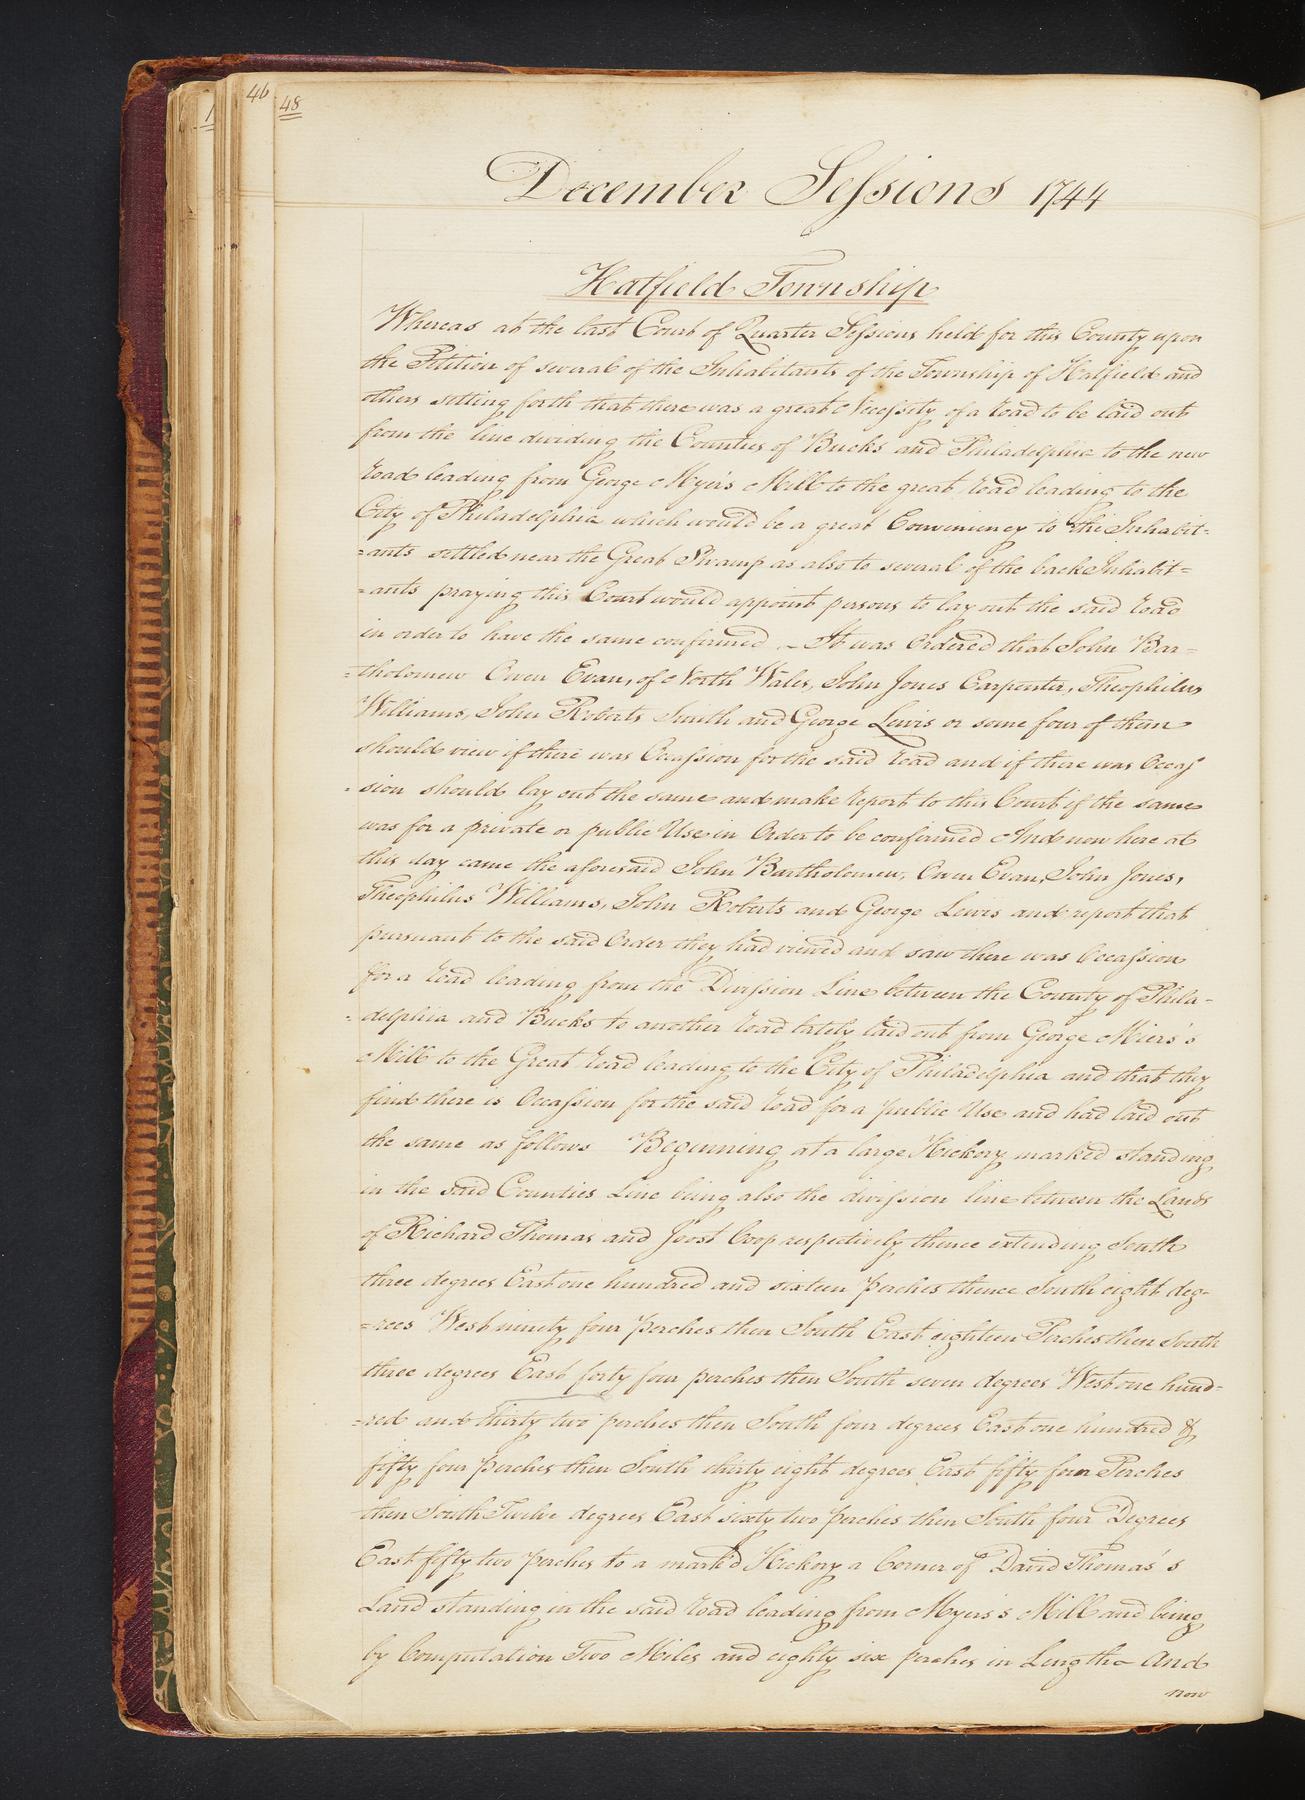 46
48
December Sessions 1744
Hatfield Township
Whereas at the last Court of Quarter Sessions held for this County upon
the Petition of several of the Inhabitants of the Township of Hatfield and
others setting forth that there was a great Necessity of a Road to be laid out
from the line dividing the Counties of Bucks and Philadelphia to the new
Road leading from George Myers Mill to the great Road leading to the
City of Philadelphia which would be a great Conveniency to the Inhabit-
=ants settled near the Great Swamp as also to several of the back Inhabit=
=ants praying this Court would appoint persons to lay out the said Road
in order to have the same confirmed - It was Ordered that John Bar=
=tholomew Owen Evan, of North Wales, John Jones Carpenter, Theophilus
Williams, John Roberts Smith and George Lewis or some four of them
should view if there was Occassion for the said Road and if there was Occas
=sion should lay out the same and make Report to this Court if the same
was for a private or public Use in Order to be confirmed And now here at
this day came the aforesaid John Bartholomew, Owen Evan, John Jones,
Theophilus Williams, John Roberts and George Lewis and report that
pursuant to the said Order they had viewed and saw there was Occassion
for a Road leading from the Division Line between the County of Phila-
=delphia and Bucks to another Road lately laid out from George Miers's
Mill to the Great Road leading to the City of Philadelphia and that they
find there is Occassion for the said Road for a public Use and had laid out
the same as follows Beginning at a large Hickory marked standing
in the said Counties Line being also the division line between the Lands
of Richard Thomas and Joost Coop respectively thence extending South
three degrees East one hundred and sixteen perches thence South eight deg-
=rees West ninety four perches then South East eighteen Perches then South
three degrees East forty four perches then South seven degrees West one hund=
=red and thirty two perches then South four degrees East one hundred &
fifty four perches then South thirty eight degrees East fifty four Perches
then South Twelve degrees East sixty two perches then South four Degrees
East fifty two perches to a mark'd Hickory a Corner of David Thomas's
Land standing in the said Road leading from Myers's Mill and being
by Computation Two Miles and eighty six perches in Length - And
now